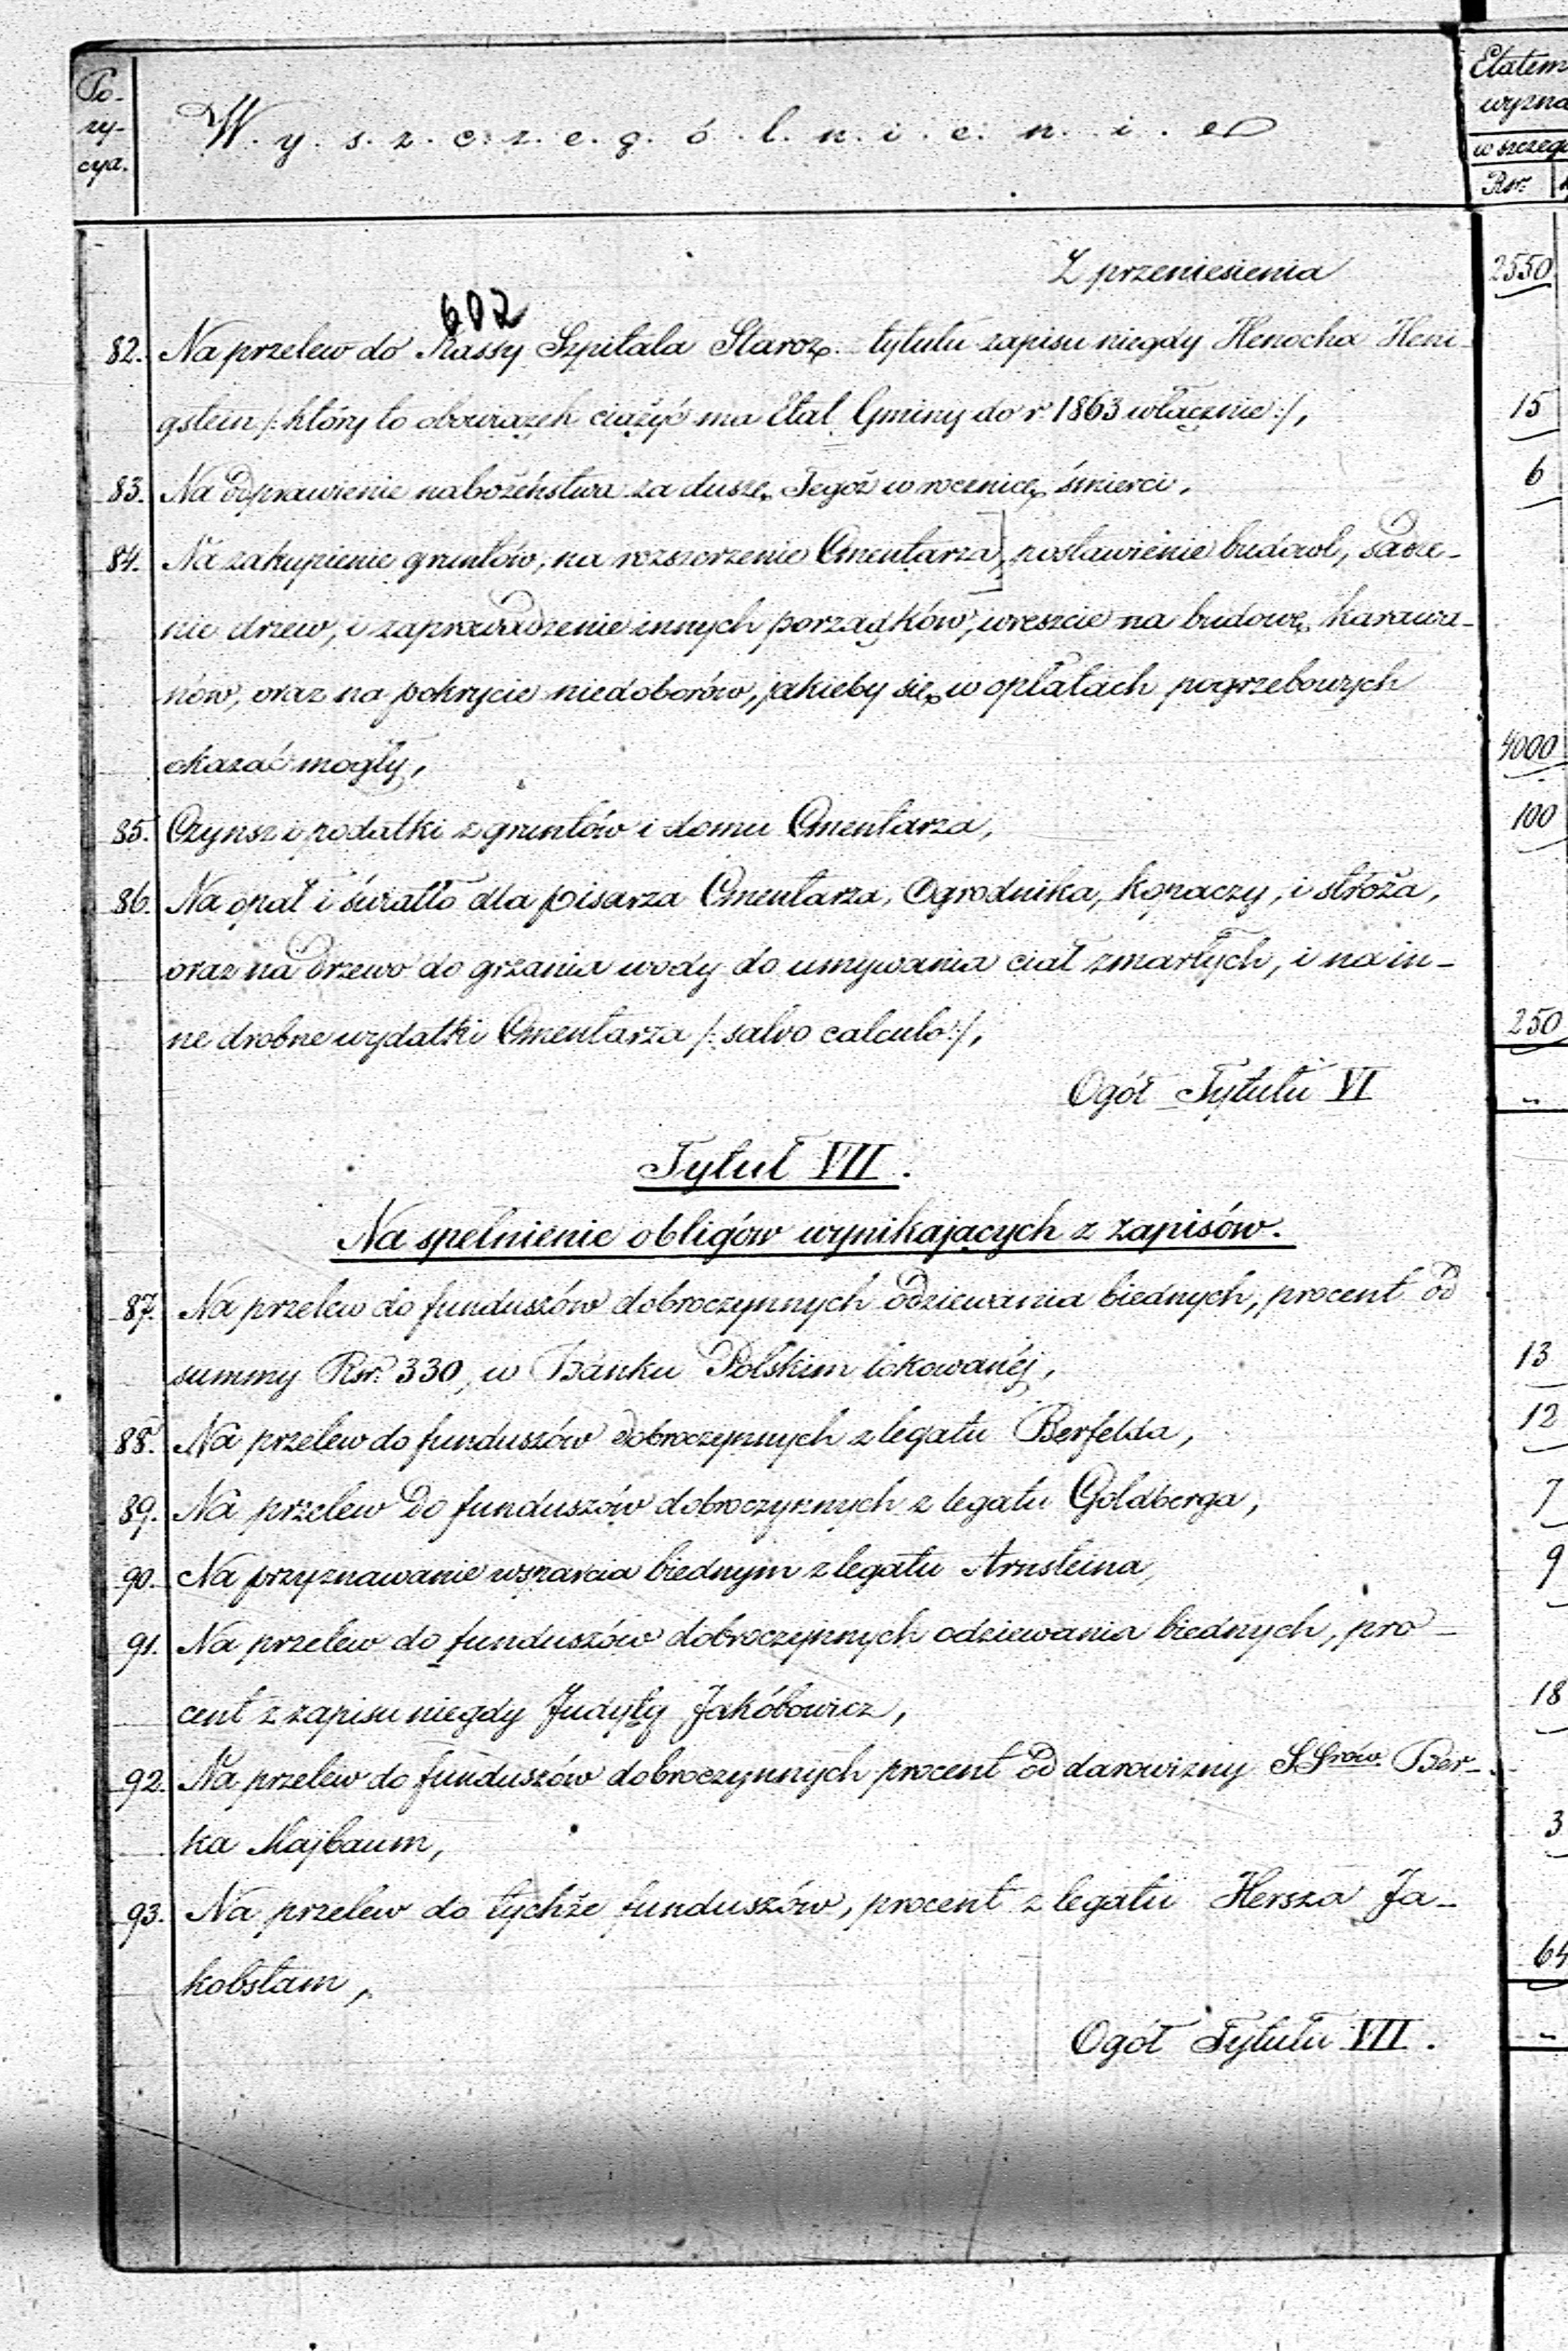 Po-
zy-
cya.
W.y.s.z.c.z.e.g.ó.l.n.i.e.n.i.e
Etatem
wyzna
w szczegó
Rsr.
Z przeniesienia 2550
602
82. Na przelew do Kassy Szpitala Staroz. tytułu zapisu niegdy Henocha Heni-
gstein /: który to obowiązek ciążyć ma Etat Gminy do r. 1863 włącznie :/, 15
83. Na odprawienie nabożeństwa za duszę Tegoż w rocznicę śmierci, 6
84. Na zakupienie gruntów, na rozszerzenie Cmentarza], postawienie budowl, sadze-
nie drzew, i zaprowadzenie innych porządków, wreszcie na budowę karawa-
nów, oraz na pokrycie niedoborów, jakieby się w opłatach pogrzebowych
okazać mogły, 4000
85. Czynsz i podatki z gruntów i domu Cmentarza, 100
86. Na opał i światło dla pisarza Cmentarza, Ogrodnika, kopaczy, i stróża,
oraz na drzewo do grzania wody do umywania ciał zmarłych, i na in-
ne drobne wydatki Cmentarza /: salvo calculo :/, 250
Ogół Tytułu VI "
Tytuł VII.
Na spełnienie obligów wynikających z zapisów.
87. Na przelew do funduszów dobroczynnych odziewania biednych, procent od
summy Rsr. 330, w Banku Polskim lokowanéj, 13
88. Na przelew do funduszów dobroczynnych z legatu Berfelda, 12
89. Na przelew do funduszów dobroczynnych z legatu Goldberga, 7
90. Na przyznawanie wsparcia biednym z legatu Arnsteina, 9
91. Na przelew do funduszów dobroczynnych odziewania biednych, pro-
cent z zapisu niegdy Judyty Jakóbowicz, 18
92. Na przelew do funduszów dobroczynnych procent od darowizny SSrów Ber-
ka Majbaum, 3
93. Na przelew do tychże funduszów, procent z legatu Hersza Ja-
kobstam, 64
Ogół Tytułu VII. "